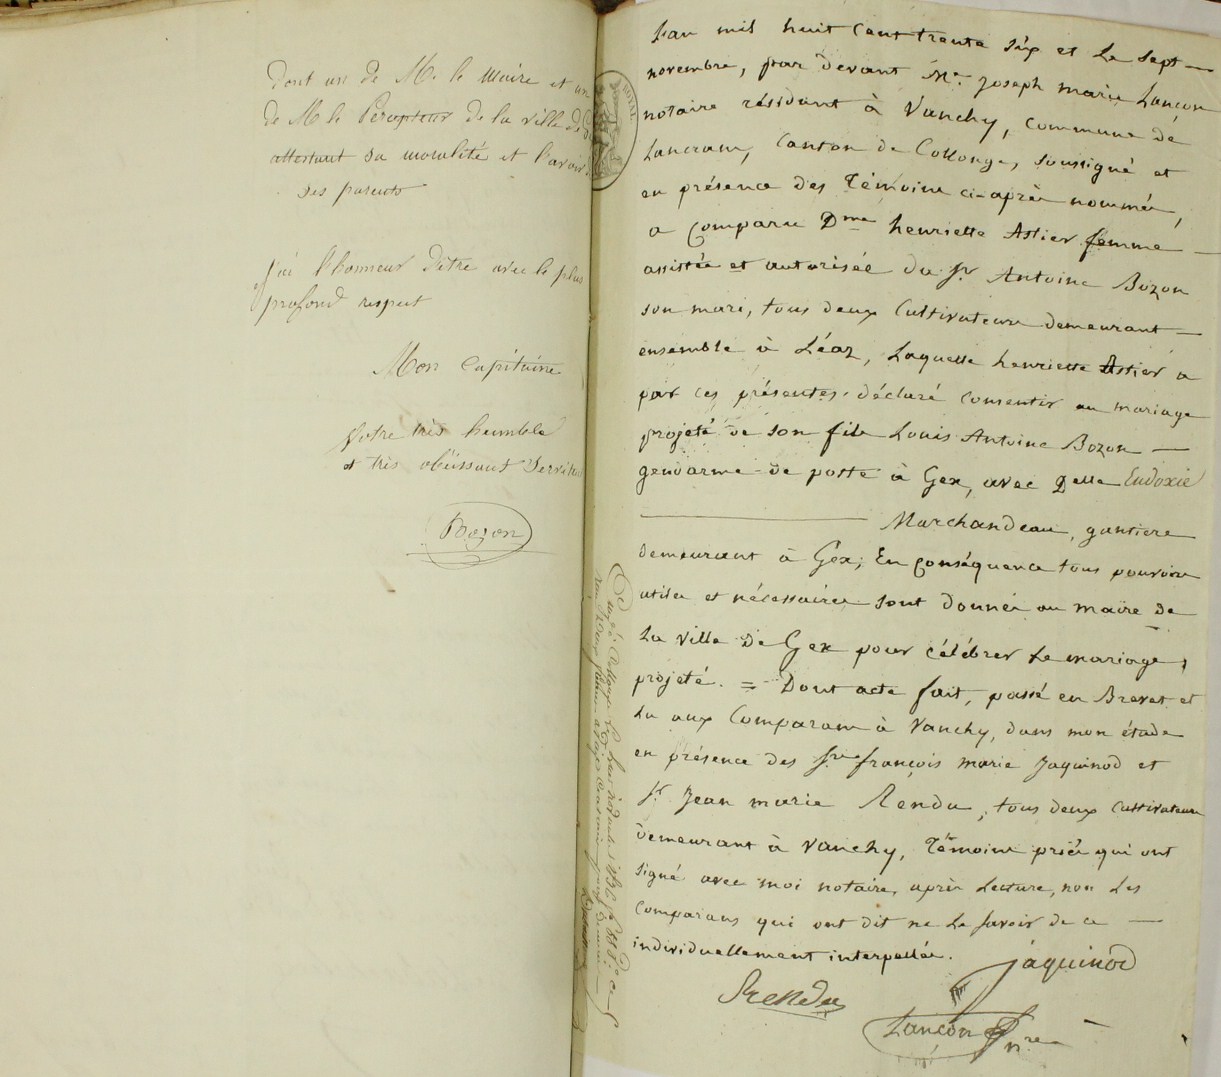 dont un de Mr le Maire et un
de Mr le Percepteur de la ville de
attestant sa moralité et l'avoir
ses parents
J'ai l'honneur d'être avec le plus
profond respect
Mon Capitaine
Votre très humble
et très obéissant Servit
Bozon
ROYAL
L'an mil huit cent trente six et le sept —
novembre, par devant Me. Joseph marie Lançon
notaire résidant à Vanchy, commune de
Lancram, Canton de Collonge, soussigné et
en présence des Témoins ci-après nommés,
a Comparu Dme henriette Astier femme —
assistée et autorisée du Sr Antoine Bozon
son mari, tous deux Cultivateurs demeurant —
ensemble à Léaz, Laquelle henriette Astier a
par ces présentes déclaré consentir au mariage
projeté de son fils Louis Antoine Bozon —
gendarme de poste à Gex, avec Delle Eudoxie
——— Marchandeau, gantiere
demeurant à Gex; En conséquence tous pouvoirs
utiles et nécessaires sont donnés au maire de
La ville de Gex pour célébrer Le mariage
projeté. = Dont acte fait, passé en Brevet et
Lu aux Comparans à Vanchy, dans mon étude
en présence des Srs françois marie Jaquinod et
Sr Jean marie Rendu, tous deux cultivateurs
demeurant à Vanchy, Témoins priés qui ont
signé avec moi notaire, après Lecture, non Les
Comparans qui ont dit ne Le savoir de ce —
individuellement interpellés.
jaquinod
Rendu
Lançon nre